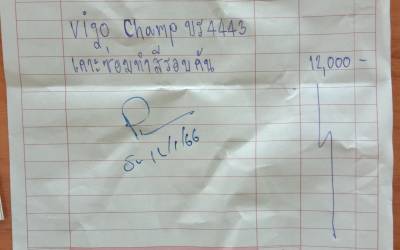 Vigo Champ บร 4443
เคาะซ่อมทำสีรอบคัน 12,000 -
12/1/66